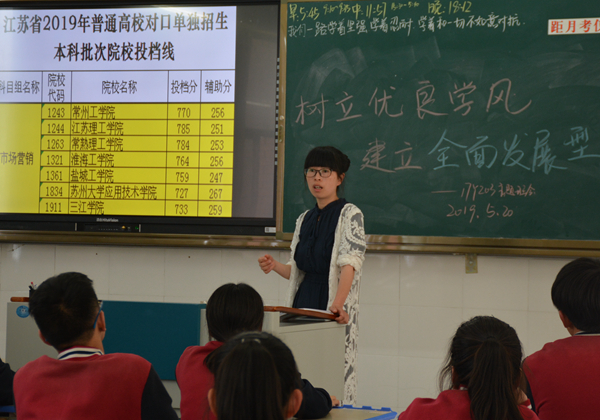 江苏省2019年普通高校对口单独招生
本科批次院校投档线
科目组名称 院校代码 院校名称 投档分 辅助分
市场营销
1243 常州工学院 770 256
1244 江苏理工学院 785 251
1263 常熟理工学院 784 253
1321 淮海工学院 764 256
1361 盐城工学院 759 247
1834 苏州大学应用技术学院 727 267
1911 三江学院 733 259
早5:45
中11:57
晚18:12
我们一路学着坚强,学着
学着和一切不如意对抗.
距月考仅
树立优良学风
建立全面发展型
2019.5.20